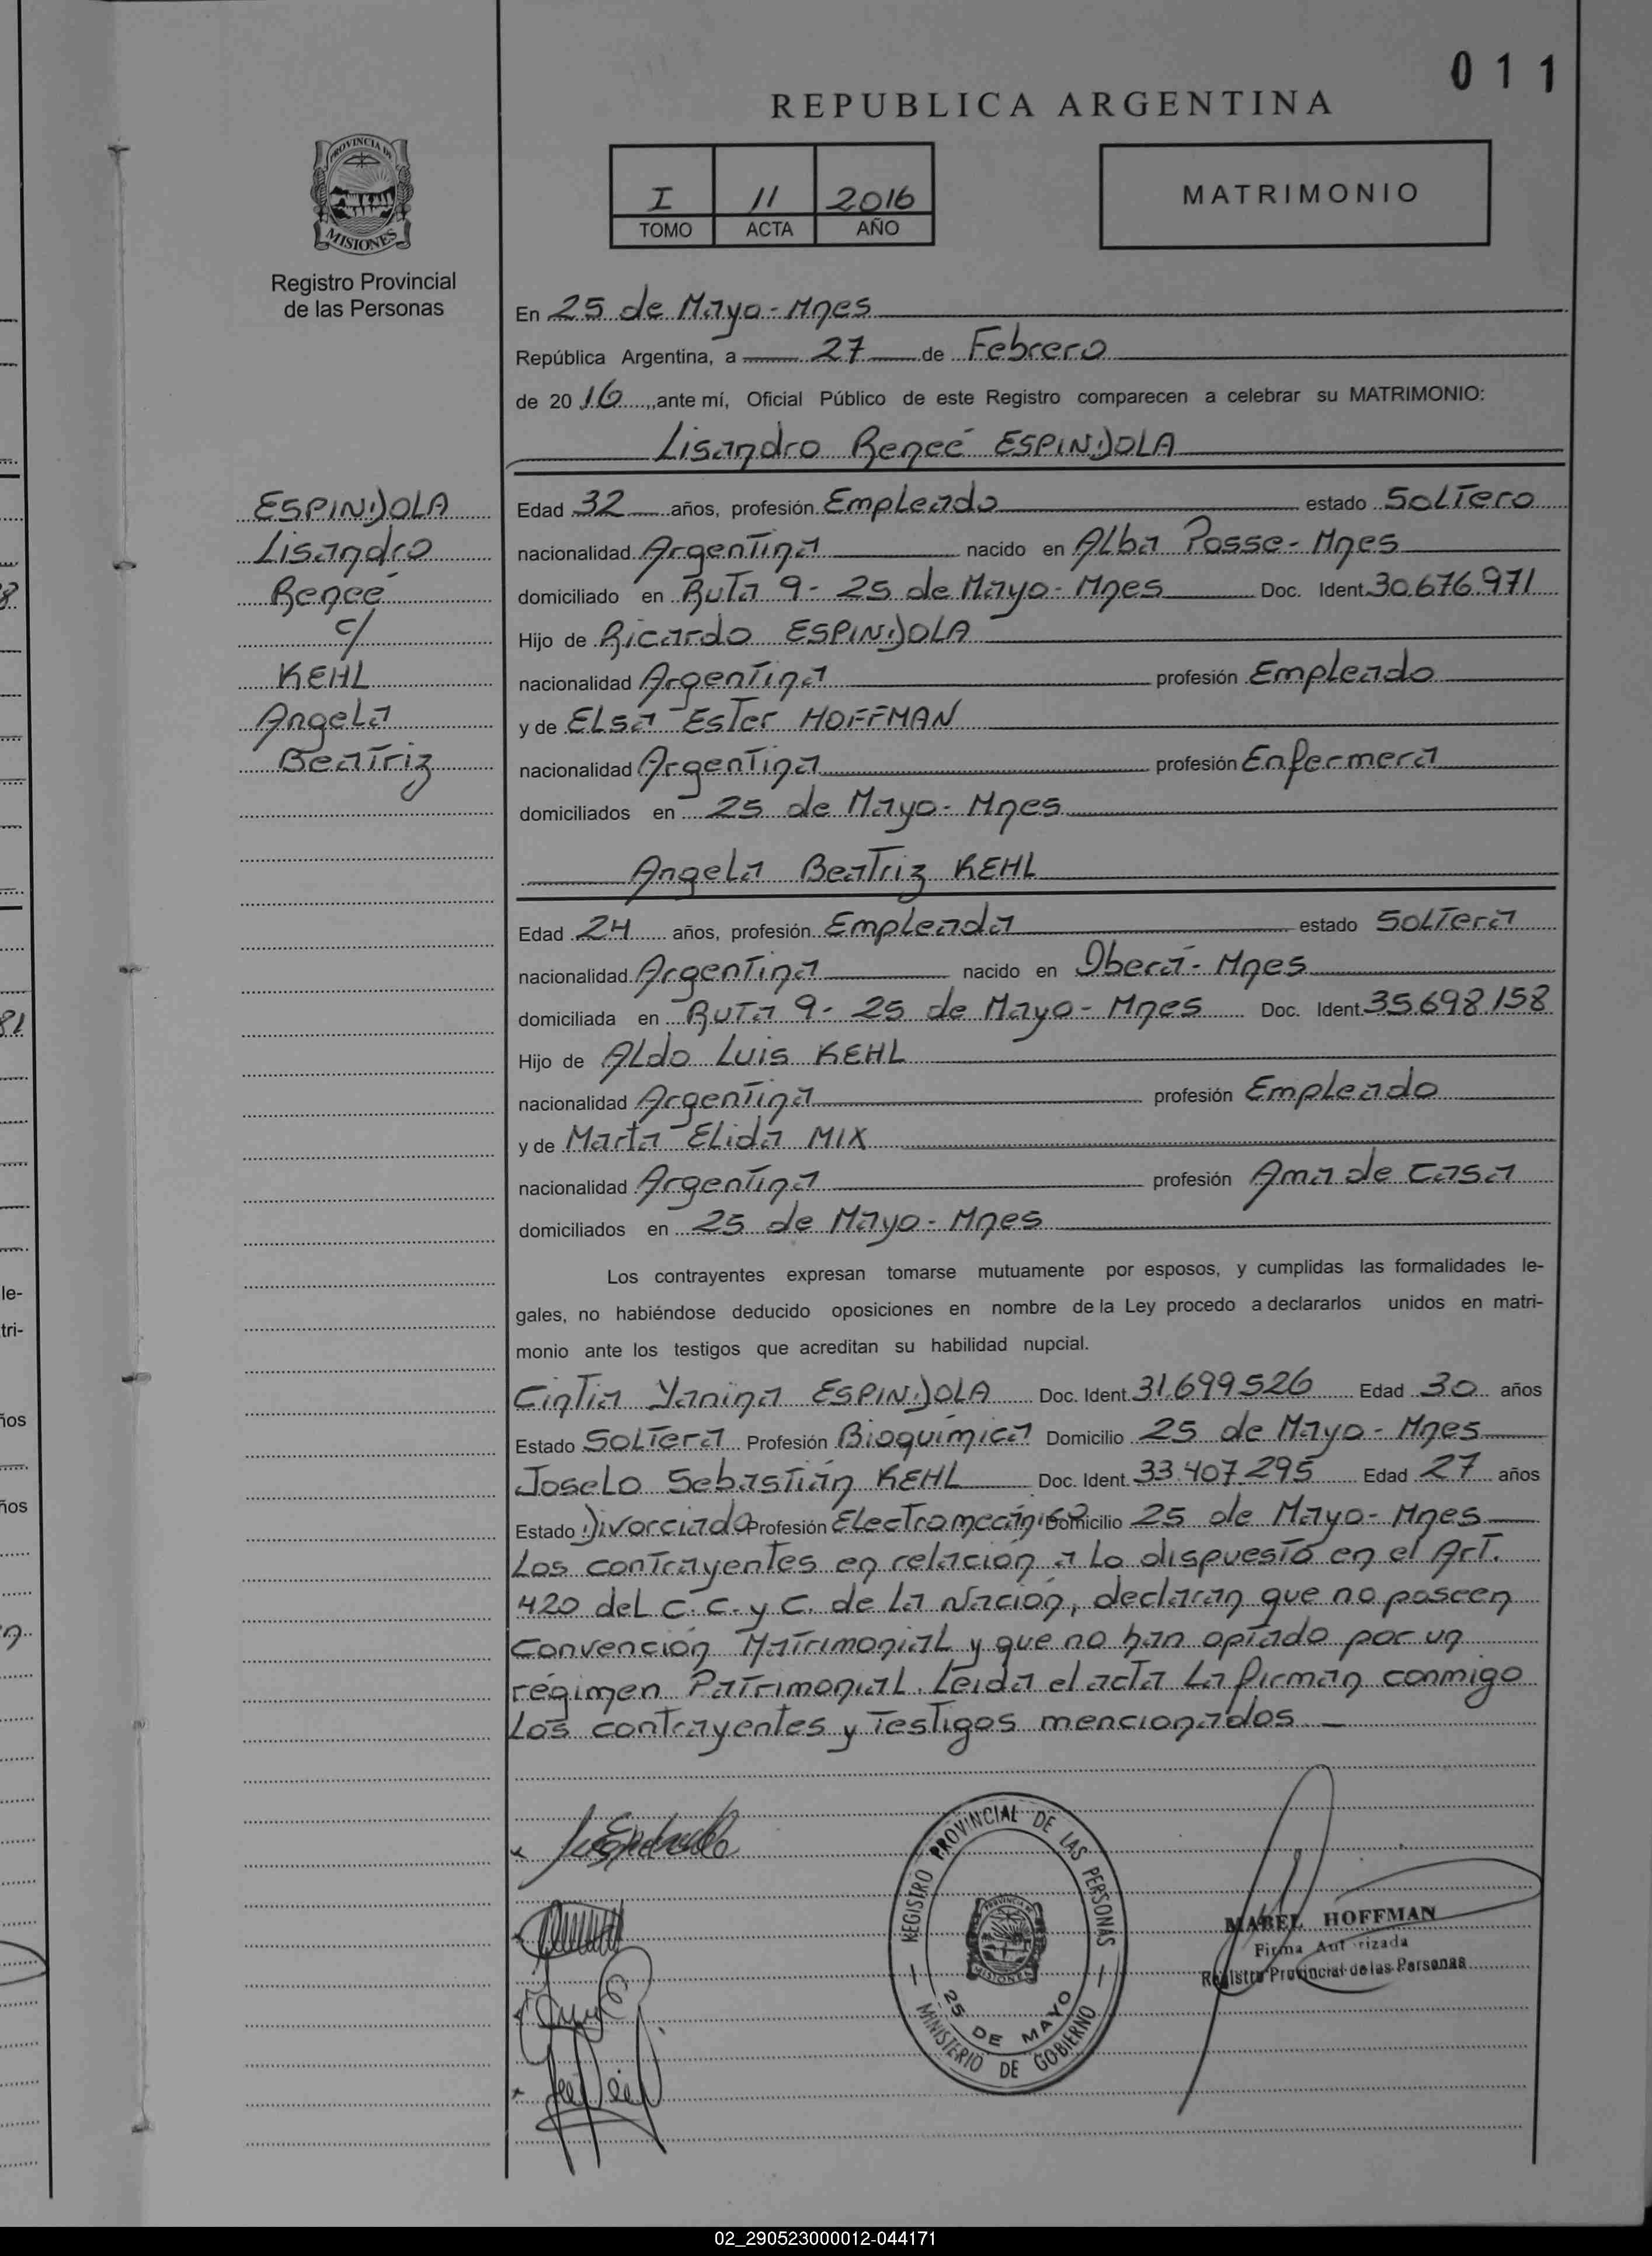 011
REPUBLICA ARGENTINA
I 11 2016
TOMO ACTA AÑO
MATRIMONIO
PROVINCIA DE
MISIONES
Registro Provincial
de las Personas
En 25 de Mayo - Mnes
República Argentina, a 27 de Febrero
de 2016, ante mí, Oficial Público de este Registro comparecen a celebrar su MATRIMONIO:
Lisandro Reneé ESPINDOLA
ESPINDOLA
Lisandro
Reneé
c/
KEHL
Angela
Beatriz
Edad 32 años, profesión Empleado estado Soltero
nacionalidad Argentina nacido en Alba Posse - Mnes
domiciliado en Ruta 9 - 25 de Mayo - Mnes Doc. Ident. 30.676.971
Hijo de Ricardo ESPINDOLA
nacionalidad Argentina profesión Empleado
y de Elsa Ester HOFFMAN
nacionalidad Argentina profesión Enfermera
domiciliados en 25 de Mayo - Mnes
Angela Beatriz KEHL
Edad 24 años, profesión Empleada estado Soltera
nacionalidad Argentina nacido en Oberá - Mnes
domiciliada en Ruta 9 - 25 de Mayo - Mnes Doc. Ident. 35.698.158
Hijo de Aldo Luis KEHL
nacionalidad Argentina profesión Empleado
y de Marta Elida MIX
nacionalidad Argentina profesión Ama de casa
domiciliados en 25 de Mayo - Mnes
Los contrayentes expresan tomarse mutuamente por esposos, y cumplidas las formalidades le-
gales, no habiéndose deducido oposiciones en nombre de la Ley procedo a declararlos unidos en matri-
monio ante los testigos que acreditan su habilidad nupcial.
Cintia Yanina ESPINDOLA Doc. Ident. 31.699.526 Edad 30 años
Estado Soltera Profesión Bioquímica Domicilio 25 de Mayo - Mnes
Joselo Sebastián KEHL Doc. Ident. 33.407.295 Edad 27 años
Estado Divorciado Profesión Electromecánico Domicilio 25 de Mayo - Mnes
Los contrayentes en relación a lo dispuesto en el Art.
420 del C. C. y C. de la Nación, declaran que no poseen
Convención Matrimonial y que no han optado por un
régimen Patrimonial. Leída el acta la firman conmigo
los contrayentes y testigos mencionados
REGISTRO PROVINCIAL DE LAS PERSONAS
25 DE MAYO
MINISTERIO DE GOBIERNO
MABEL HOFFMAN
Firma Autorizada
Registro Provincial de las Personas
02_290523000012-044171